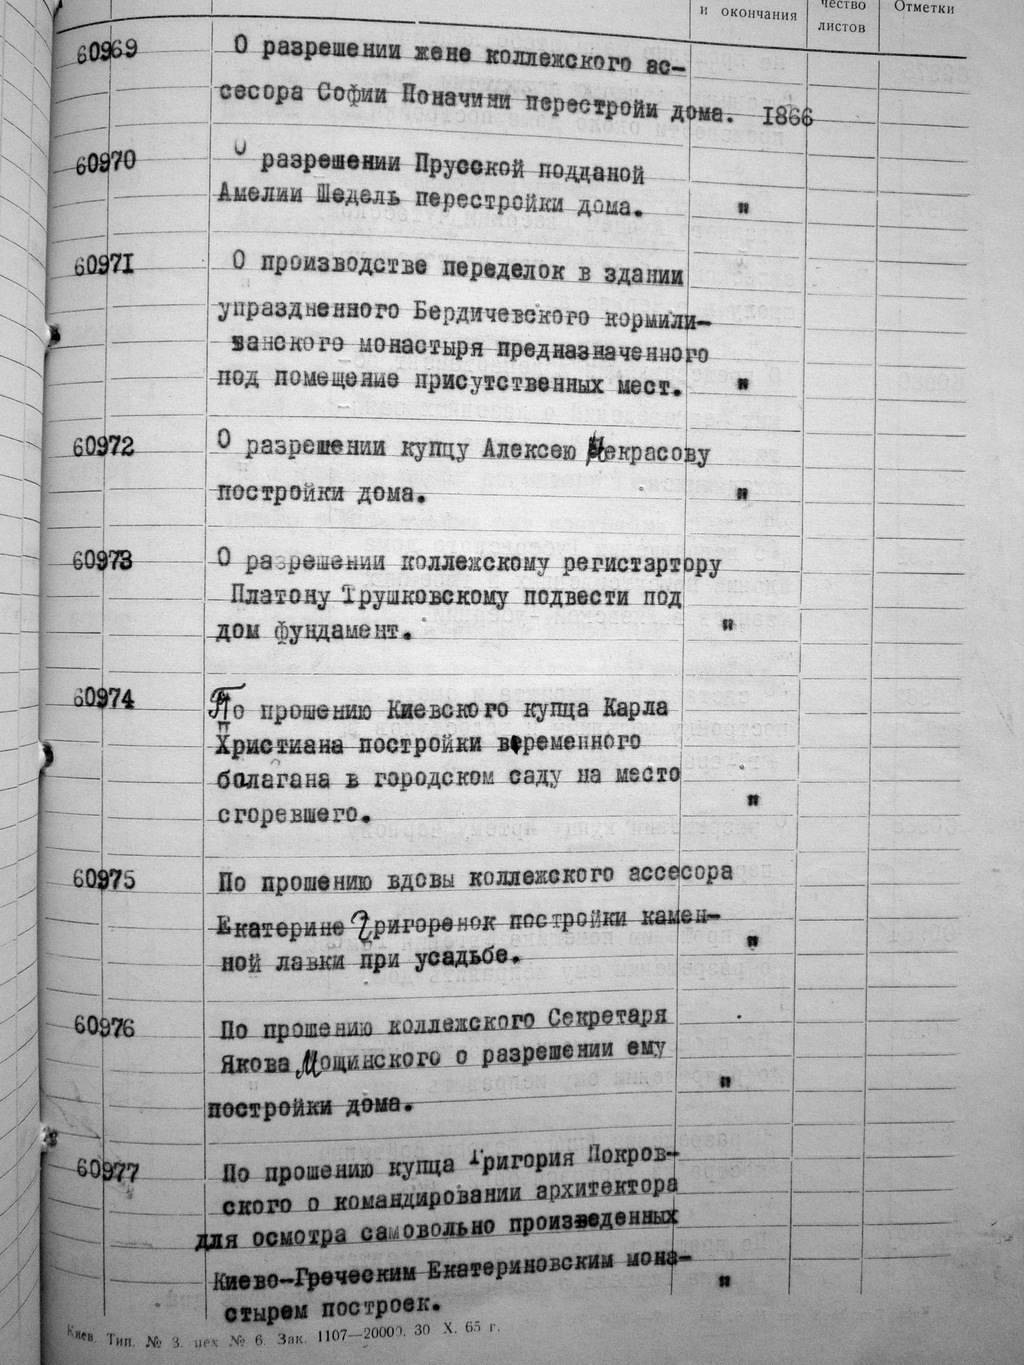 и окончания
чество
листов
Отметки
60969 О разрешении жене коллежского ас-
сесора Софии Поначини перестройи дома. 1866
60970 О разрешении Прусской подданой
Амелии Шедель перестройки дома. "
60971 О производстве переделок в здании
упраздненного Бердичевского кормили-
занского монастыря предназначенного
под помещение присутственных мест. "
60972 О разрешении купцу Алексею Некрасову
постройки дома. "
60973 О разрешении коллежскому регистартору
Платону Трушковскому подвести под
дом фундамент. "
60974 По прошению Киевского купца Карла
Христиана постройки временного
балагана в городском саду на место
сгоревшего. "
60975 По прошению вдовы коллежского ассесора
Екатерине Григоренок постройки камен-
ной лавки при усадьбе. "
60976 По прошению коллежского Секретаря
Якова Мощинского о разрешении ему
постройки дома. "
60977 По прошению купца Григория Покров-
ского о командировании архитектора
для осмотра самовольно произведенных
Киево-Греческим Екатериновским мона-
стырем построек. "
Киев. Тип. № 3. цех № 6. Зак. 1107—20000. 30 X. 65 г.